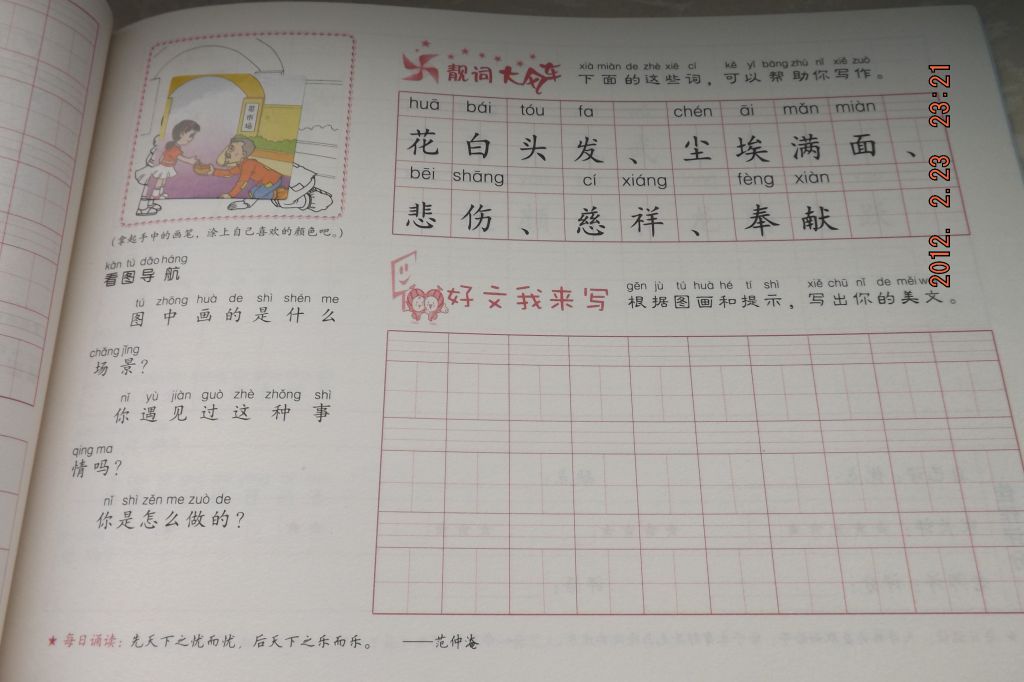 (拿起手中的画笔，涂上自己喜欢的颜色吧。)
kàn tú dǎo háng
看图导航
tú zhōng huà de shì shén me
图中画的是什么
chǎng jǐng
场景？
nǐ yù jiàn guò zhè zhǒng shì
你遇见过这种事
qing ma
情吗？
nǐ shì zěn me zuò de
你是怎么做的？
靓词大风车
xià miàn de zhè xiē cí kě yǐ bāng zhù nǐ xiě zuò
下面的这些词，可以帮助你写作。
huā bái tóu fa chén āi mǎn miàn
花白头发、尘埃满面、
bēi shāng cí xiáng fèng xiàn
悲伤、慈祥、奉献
好文我来写
gēn jù tú huà hé tí shì xiě chū nǐ de měi
根据图画和提示，写出你的美文。
★每日诵读：先天下之忧而忧，后天下之乐而乐。 ——范仲淹
2012. 2.23 23:21